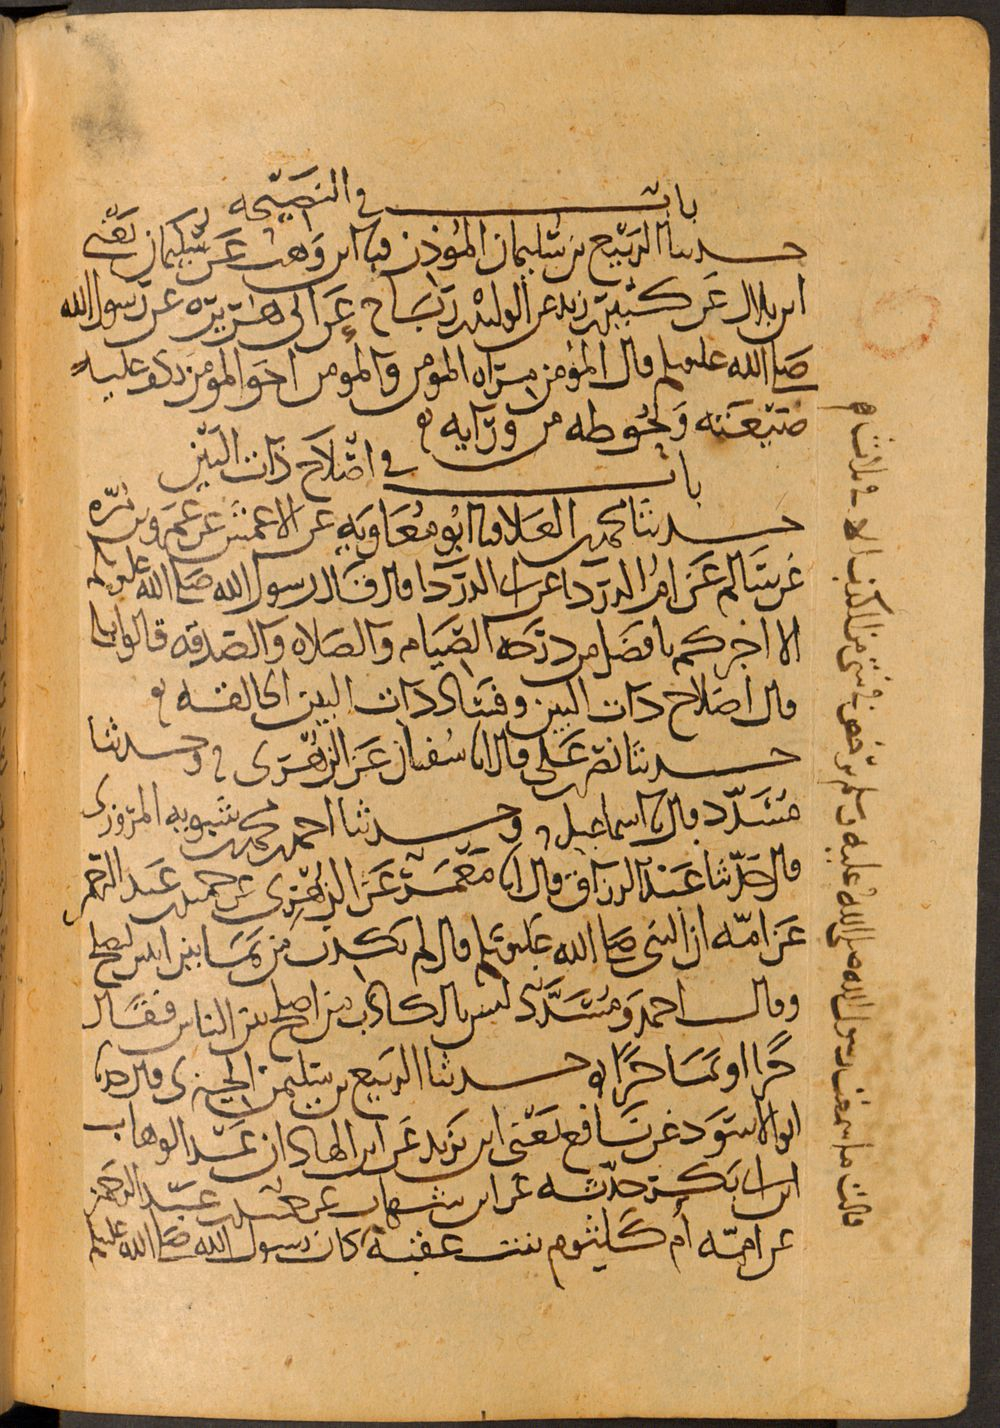 باب في النصيحة
حدثنا الربيع بن سليمان المؤذن نا ابن وهب عن سليمان يعني
ابن بلال عن كثير بن زيد عن الوليد بن رباح عن ابي هريرة عن رسول الله
صلى الله عليه وسلم قال المؤمن مرآة المؤمن والمؤمن اخو المؤمن يكف عليه
ضيعته ويحوطه من ورايه
باب في اصلاح ذات البين
حدثنا محمد بن العلا نا ابو معاوية عن الاعمش عن عمرو بن مرة
عن سالم عن ام الدردا عن ابي الدردا قال قال رسول الله صلى الله عليه وسلم
الا اخبركم بافضل من درجة الصيام والصلاة والصدقة قالوا بلى
قال اصلاح ذات البين وفساد ذات البين الحالقة
حدثنا نصر بن علي قال انا سفيان عن الزهري ح وحدثنا
مسدد قال نا اسماعيل ح وحدثنا احمد بن محمد بن شبويه المروزي
قال حدثنا عبد الرزاق قال انا معمر عن الزهري عن حميد بن عبد الرحمن
عن امه ان النبي صلى الله عليه وسلم قال لم يكذب من نما بين اثنين ليصلح
وقال احمد ومسدد ليس بالكاذب من اصلح بين الناس فقال
خيرا او نما خيرا حدثنا الربيع بن سليمن الجيزي قال حدثنا
ابو الاسود عن نافع يعني ابن يزيد عن ابن الهاد ان عبد الوهاب
ابن ابي بكر حدثه عن ابن شهاب عن حميد بن عبد الرحمن
عن امه ام كلثوم بنت عقبة كان رسول الله صلى الله عليه وسلم
قالت ما سمعت رسول الله صلى الله عليه وسلم يرخص في شي من الكذب الا في ثلاث